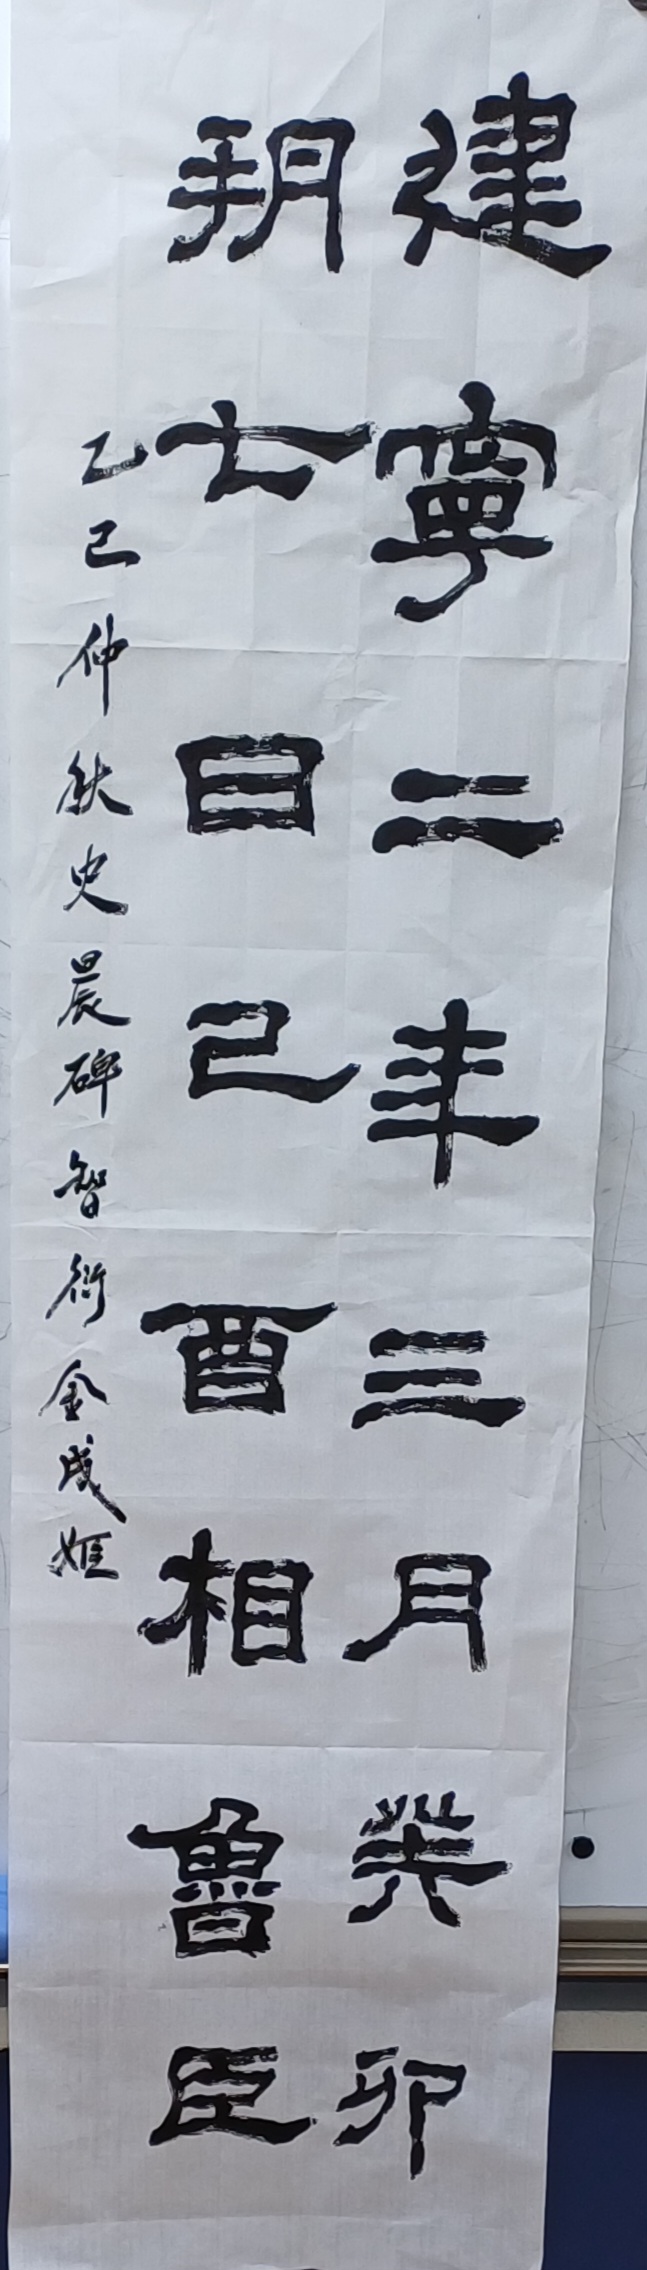 建寧二年三月癸卯
朔七日己酉相魯臣
乙巳仲秋史晨碑智衍金成姬